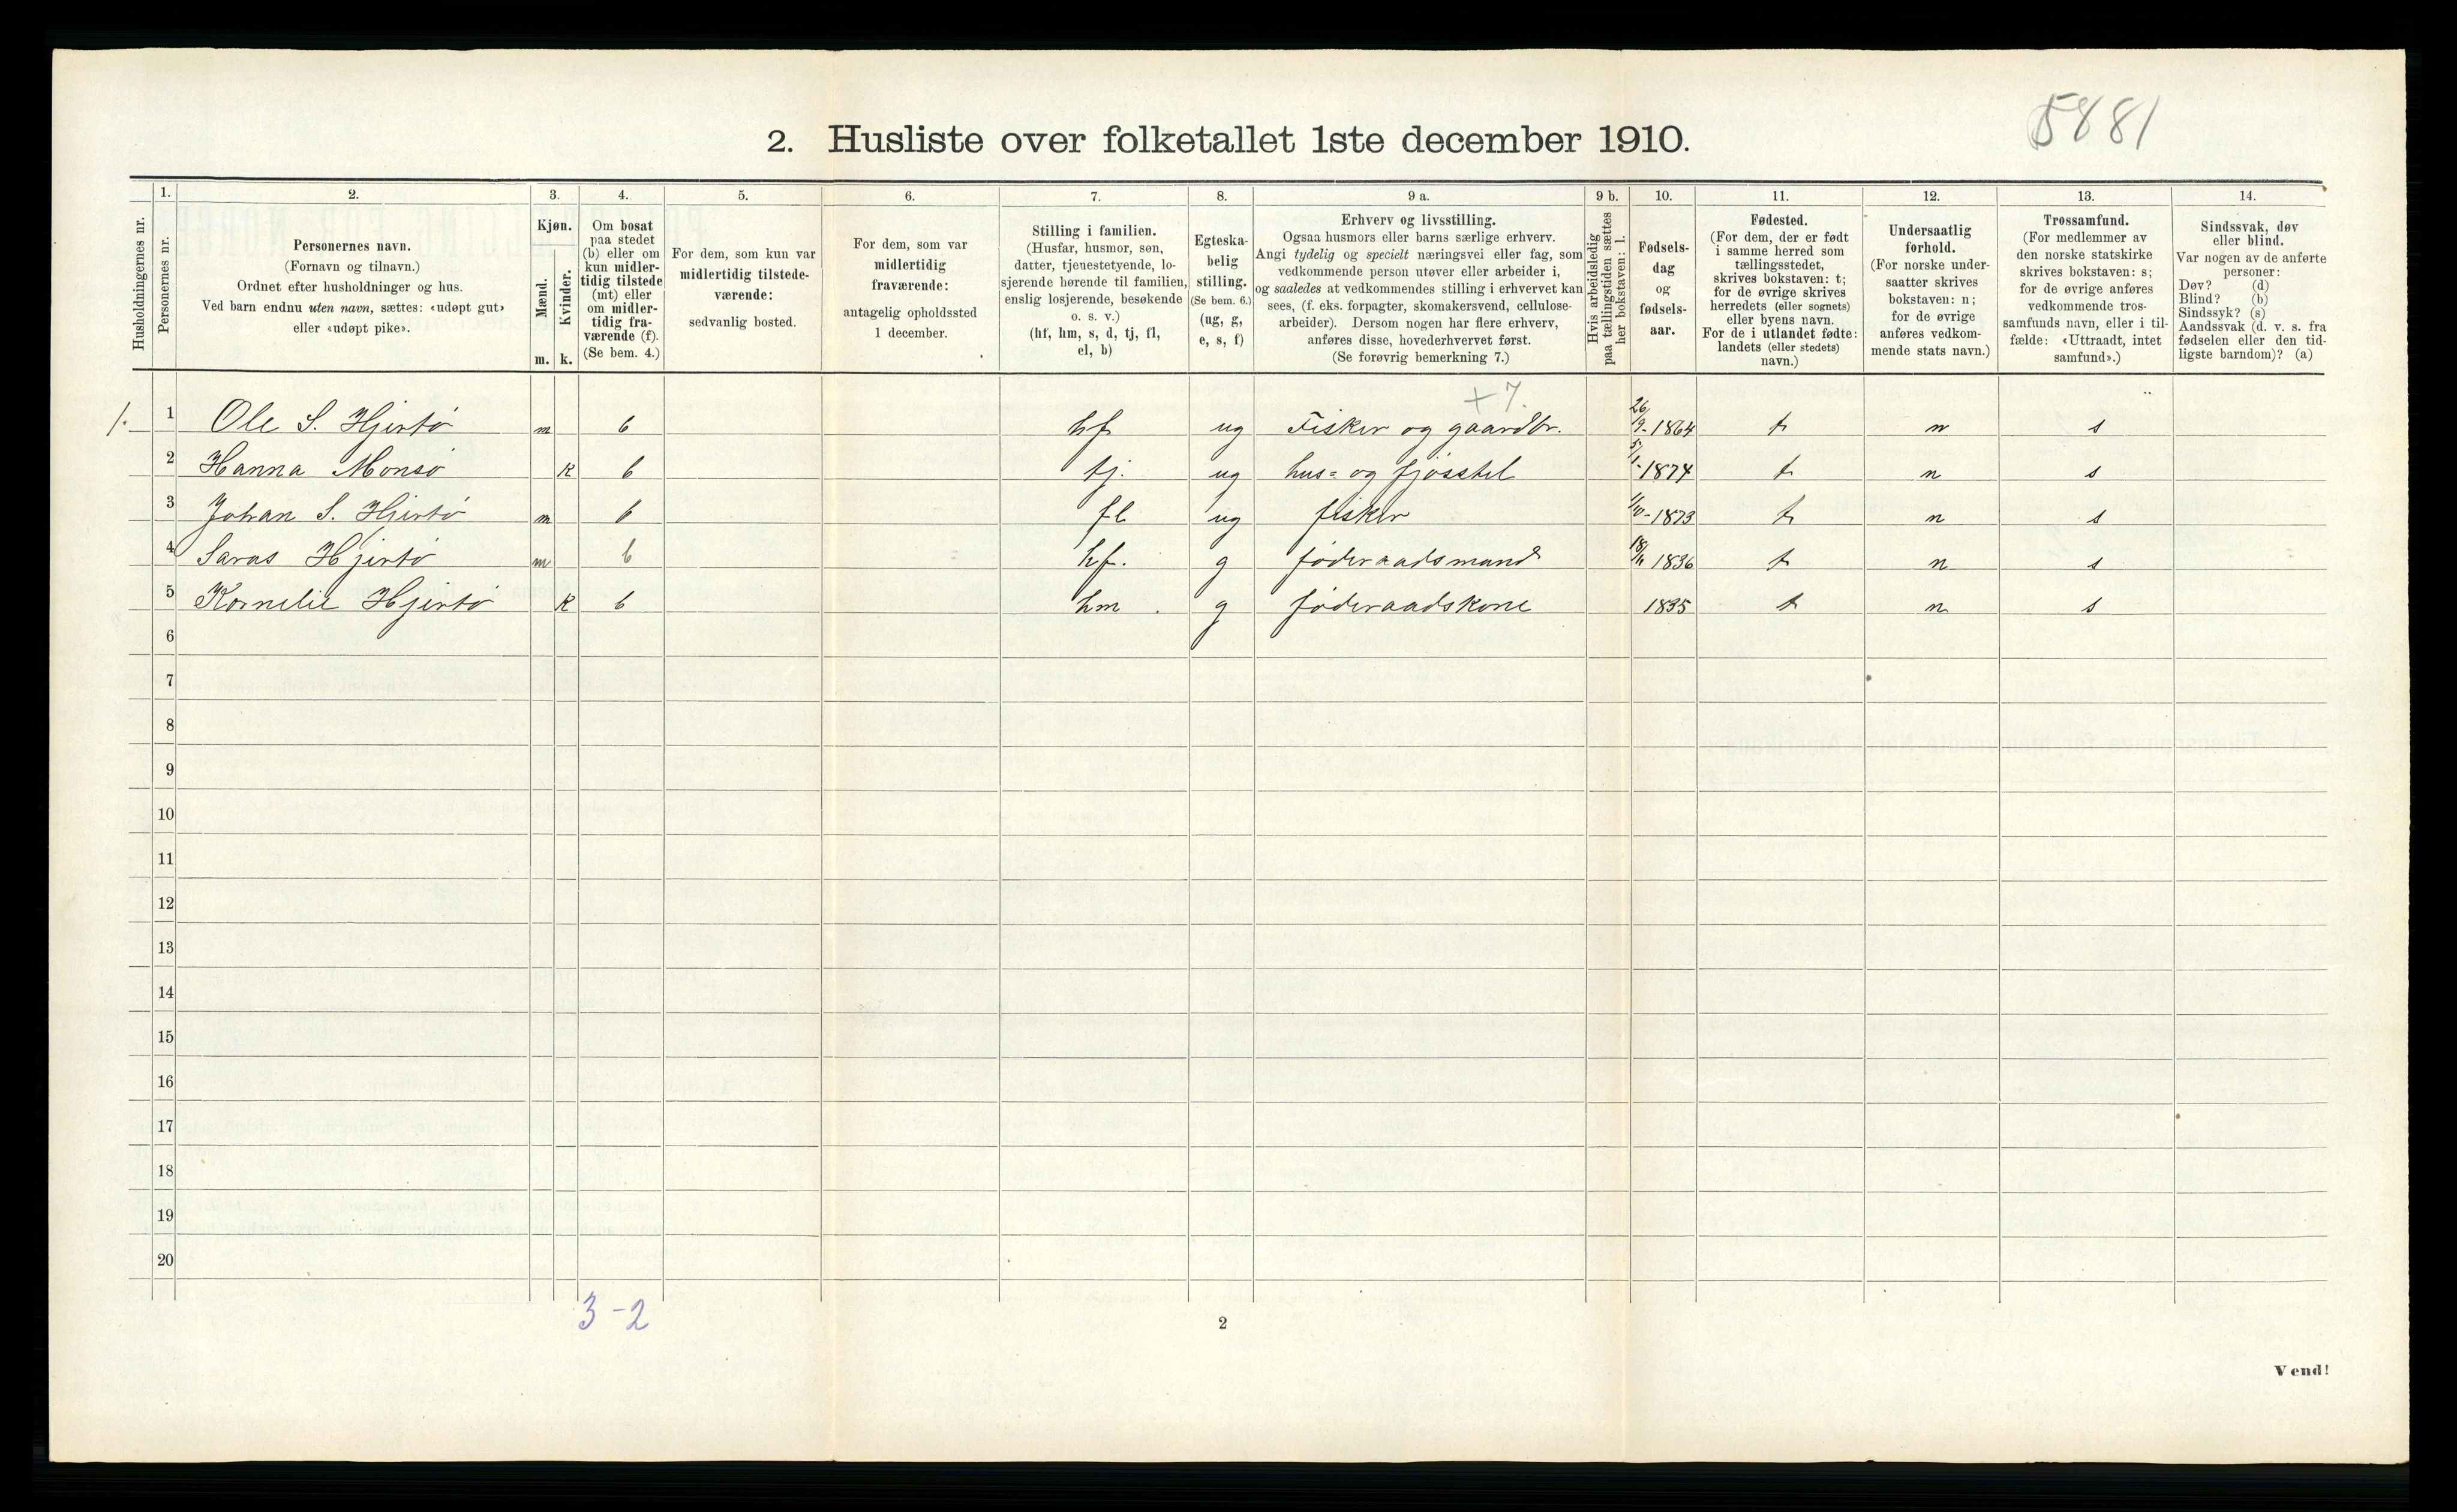 5881
2. Husliste over folketallet 1ste december 1910.
Husholdningernes nr.
1.
Personernes nr.
2.
Personernes navn.
(Fornavn og tilnavn.)
Ordnet efter husholdninger og hus.
Ved barn endnu uten navn, sættes: «udøpt gut»
eller «udøpt pike».
3.
Kjøn.
Mænd.
Kvinder.
m. k.
4.
Om bosat
paa stedet
(b) eller om
kun midler-
tidig tilstede
(mt) eller
om midler-
tidig fra-
værende (f).
(Se bem. 4.)
5.
For dem, som kun var
midlertidig tilstede-
værende:
sedvanlig bosted.
6.
For dem, som var
midlertidig
fraværende:
antagelig opholdssted
1 december.
7.
Stilling i familien.
(Husfar, husmor, søn,
datter, tjenestetyende, lo-
sjerende hørende til familien,
enslig losjerende, besøkende
o. s. v.)
(hf, hm, s, d, tj, fl,
el, b)
8.
Egteska-
belig
stilling.
(Se bem. 6.)
(ug, g,
e, s, f)
9 a.
Erhverv og livsstilling.
Ogsaa husmors eller barns særlige erhverv.
Angi tydelig og specielt næringsvei eller fag, som
vedkommende person utøver eller arbeider i,
og saaledes at vedkommendes stilling i erhvervet kan
sees, (f. eks. forpagter, skomakersvend, cellulose-
arbeider). Dersom nogen har flere erhverv,
anføres disse, hovederhvervet først.
(Se forøvrig bemerkning 7.)
9 b.
Hvis arbeidsledig
paa tællingstiden sættes
her bokstaven: l.
10.
Fødsels-
dag
og
fødsels-
aar.
11.
Fødested.
(For dem, der er født
i samme herred som
tællingsstedet,
skrives bokstaven: t;
for de øvrige skrives
herredets (eller sognets)
eller byens navn.
For de i utlandet fødte:
landets (eller stedets)
navn.)
12.
Undersaatlig
forhold.
(For norske under-
saatter skrives
bokstaven: n;
for de øvrige
anføres vedkom-
mende stats navn.)
13.
Trossamfund.
(For medlemmer av
den norske statskirke
skrives bokstaven: s;
for de øvrige anføres
vedkommende tros-
samfunds navn, eller i til-
fælde: «Uttraadt, intet
samfund».)
14.
Sindssvak, døv
eller blind.
Var nogen av de anførte
personer:
Døv? (d)
Blind? (b)
Sindssyk? (s)
Aandssvak (d. v. s. fra
fødselen eller den tid-
ligste barndom)? (a)
+7
1. 1 Ole S. Hjertø m b hf ug Fisker og gaardbr. 26/9-1864 t n s
2 Hanna Monsø k b tj. ug hus= og fjøsstel 5/1-1874 t n s
3 Johan S. Hjertø m b fl ug fisker 1/10-1873 t n s
4 Savas Hjertø m b hf. g føderaadsmand 1836 t n s
5 Kornelie Hjertø k b hm. g føderaadskone 1835 t n s
6
7
8
9
10
11
12
13
14
15
16
17
18
19
20
3-2
2
Vend!